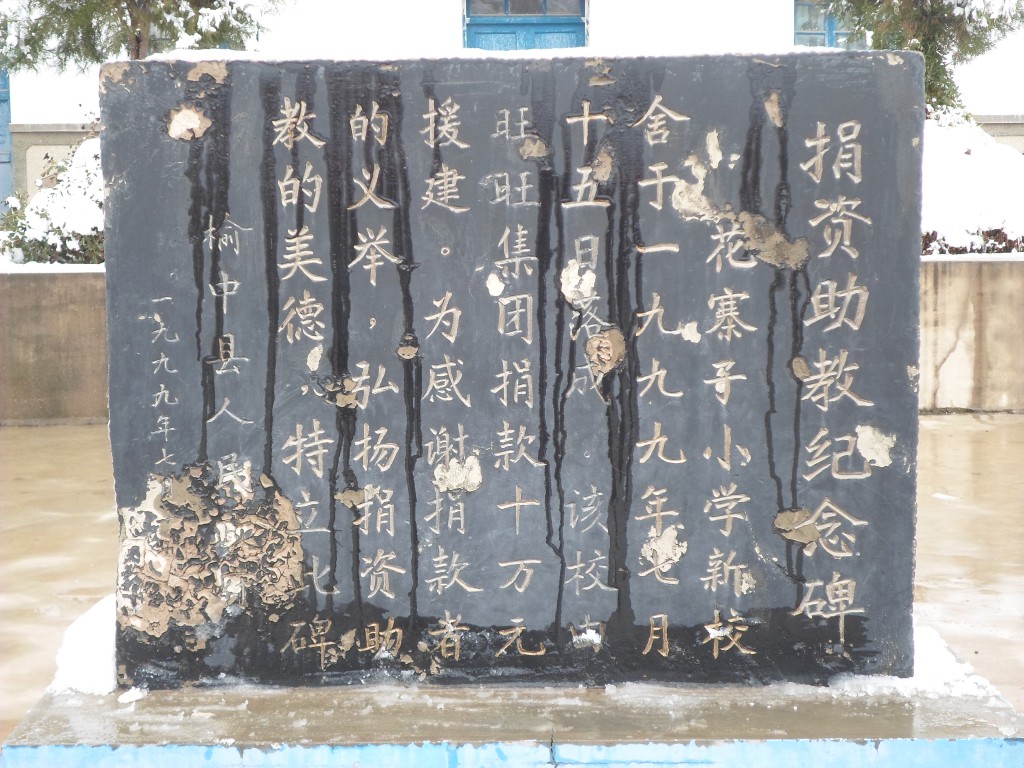 捐资助教纪念碑
花寨子小学新校
舍于一九九九年七月
十五日落成。该校由
旺旺集团捐款十万元
援建。为感谢捐款者
的义举，弘扬捐资助
教的美德，特立七碑
榆中县人民
一九九九年七